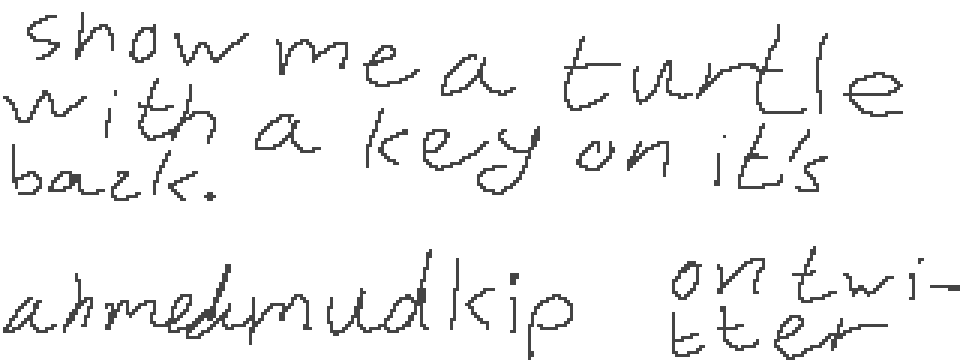 show me a turtle
with a key on it's
back.
ahmedmudkip on twi-
tter